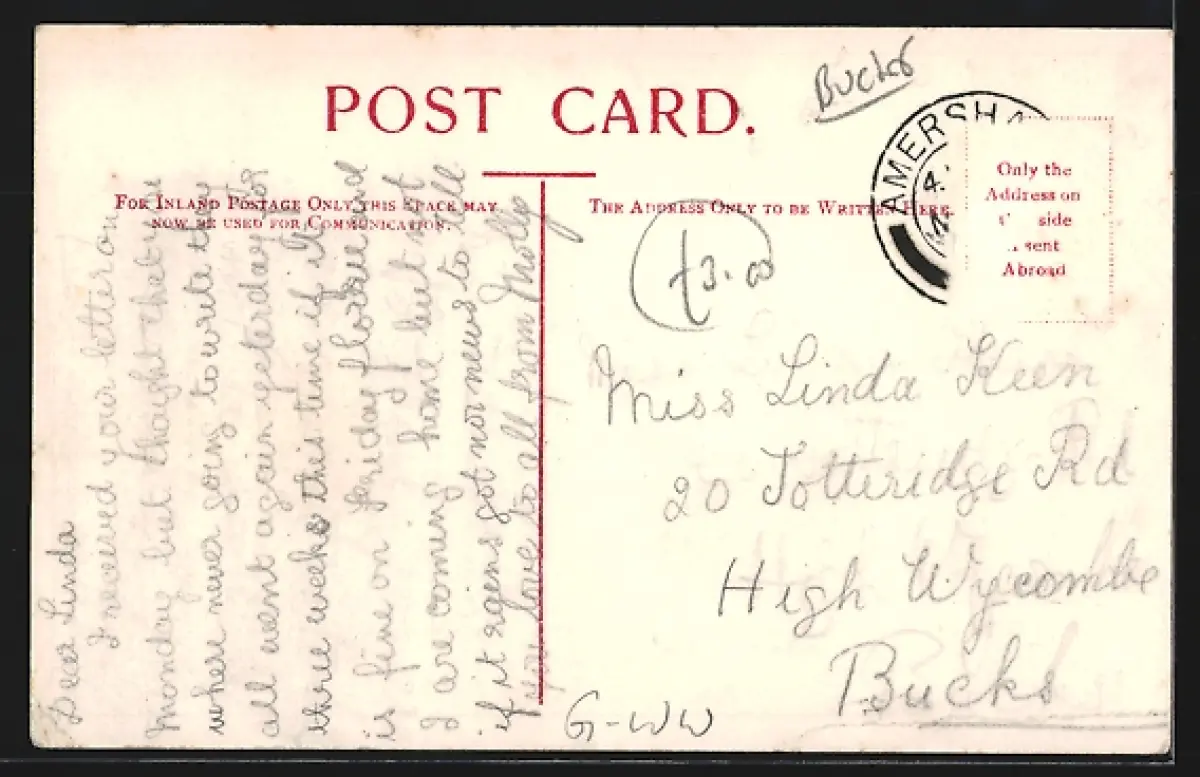 POST CARD.
Bucks
AMERSHA
4.
Only the
Address on
side
sent
Abroad
FOR INLAND POSTAGE ONLY THIS SPACE MAY
NOW BE USED FOR COMMUNICATION.
THE ADDRESS ONLY TO BE WRITTEN HERE.
£3.00
Dear Linda
I received your letter on
Monday but thought that you
where never going to write they
all went again yesterday for
three weeks this time if it
is fine on friday florrie and
I are coming home but not
if it reigns got nor news to tell
you love to all from Molly
Miss Linda Keen
20 Totteridge Rd
High Wycombe
Bucks
G-WW